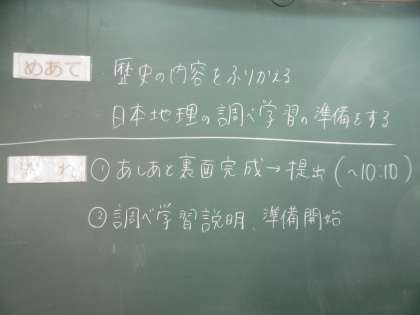 めあて 歴史の内容をふりかえる
日本地理の調べ学習の準備をする
①あしあと裏面完成→提出(~10:10)
②調べ学習説明、準備開始